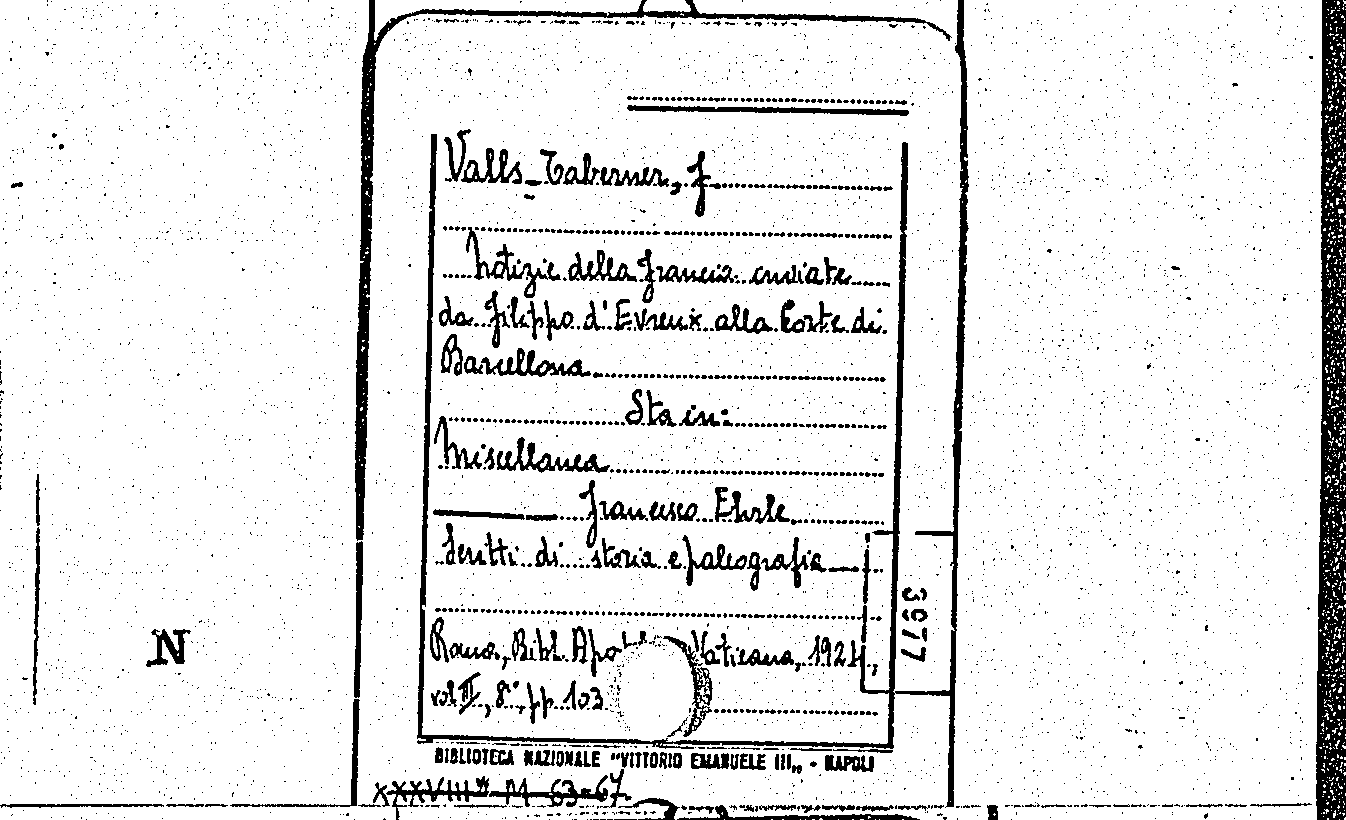 Valls-Taberner, F.
Notizie della Francia inviate
da Filippo d'Evreux alla Corte di
Barcellona
Sta in:
Miscellanea
Francesco Ehrle
Scritti di storia e paleografia
3077
Roma, Bibl. Apo Vaticana, 1924,
vol III, 8°, pp 103
N
BIBLIOTECA NAZIONALE "VITTORIO EMANUELE III„ - NAPOLI
XXXVIII M 63-67